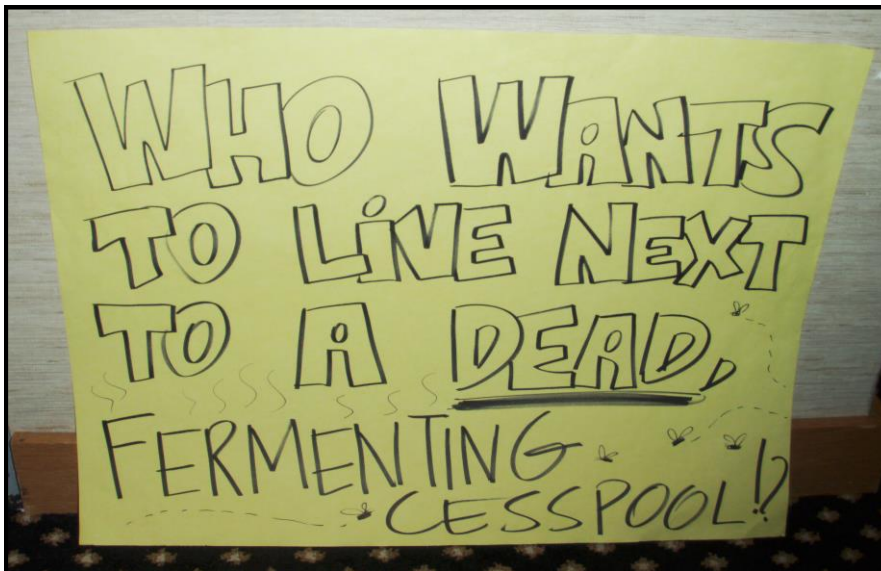 WHO WANTS
TO LiVE NEXT
TO A DEAD,
FERMENTING
CESSPOOL!?